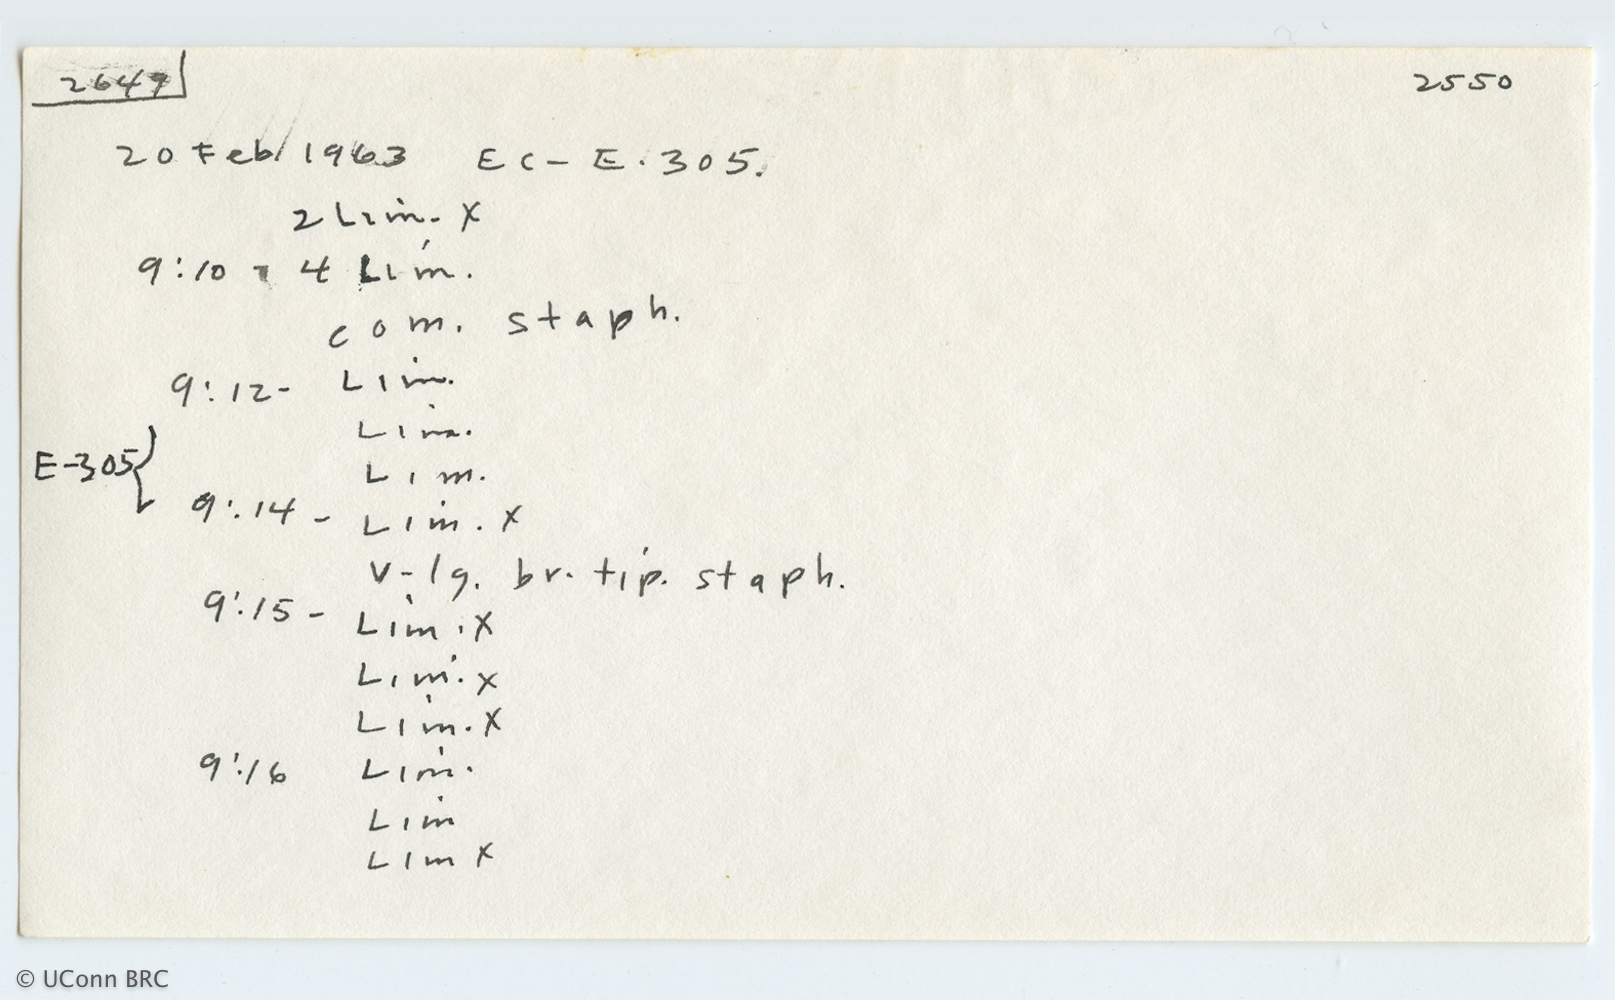 2649 2550
20 Feb/1963 Ec- E.305.
2 Lim. X
9:10 - 4 Lim.
com. staph.
9:12- Lim.
Lim.
E-305{ Lim.
9:14 - Lim. X
v-lg. br. tip. staph.
9:15 - Lim. X
Lim. X
Lim. X
9:16 Lim.
Lim
Lim X
© UConn BRC